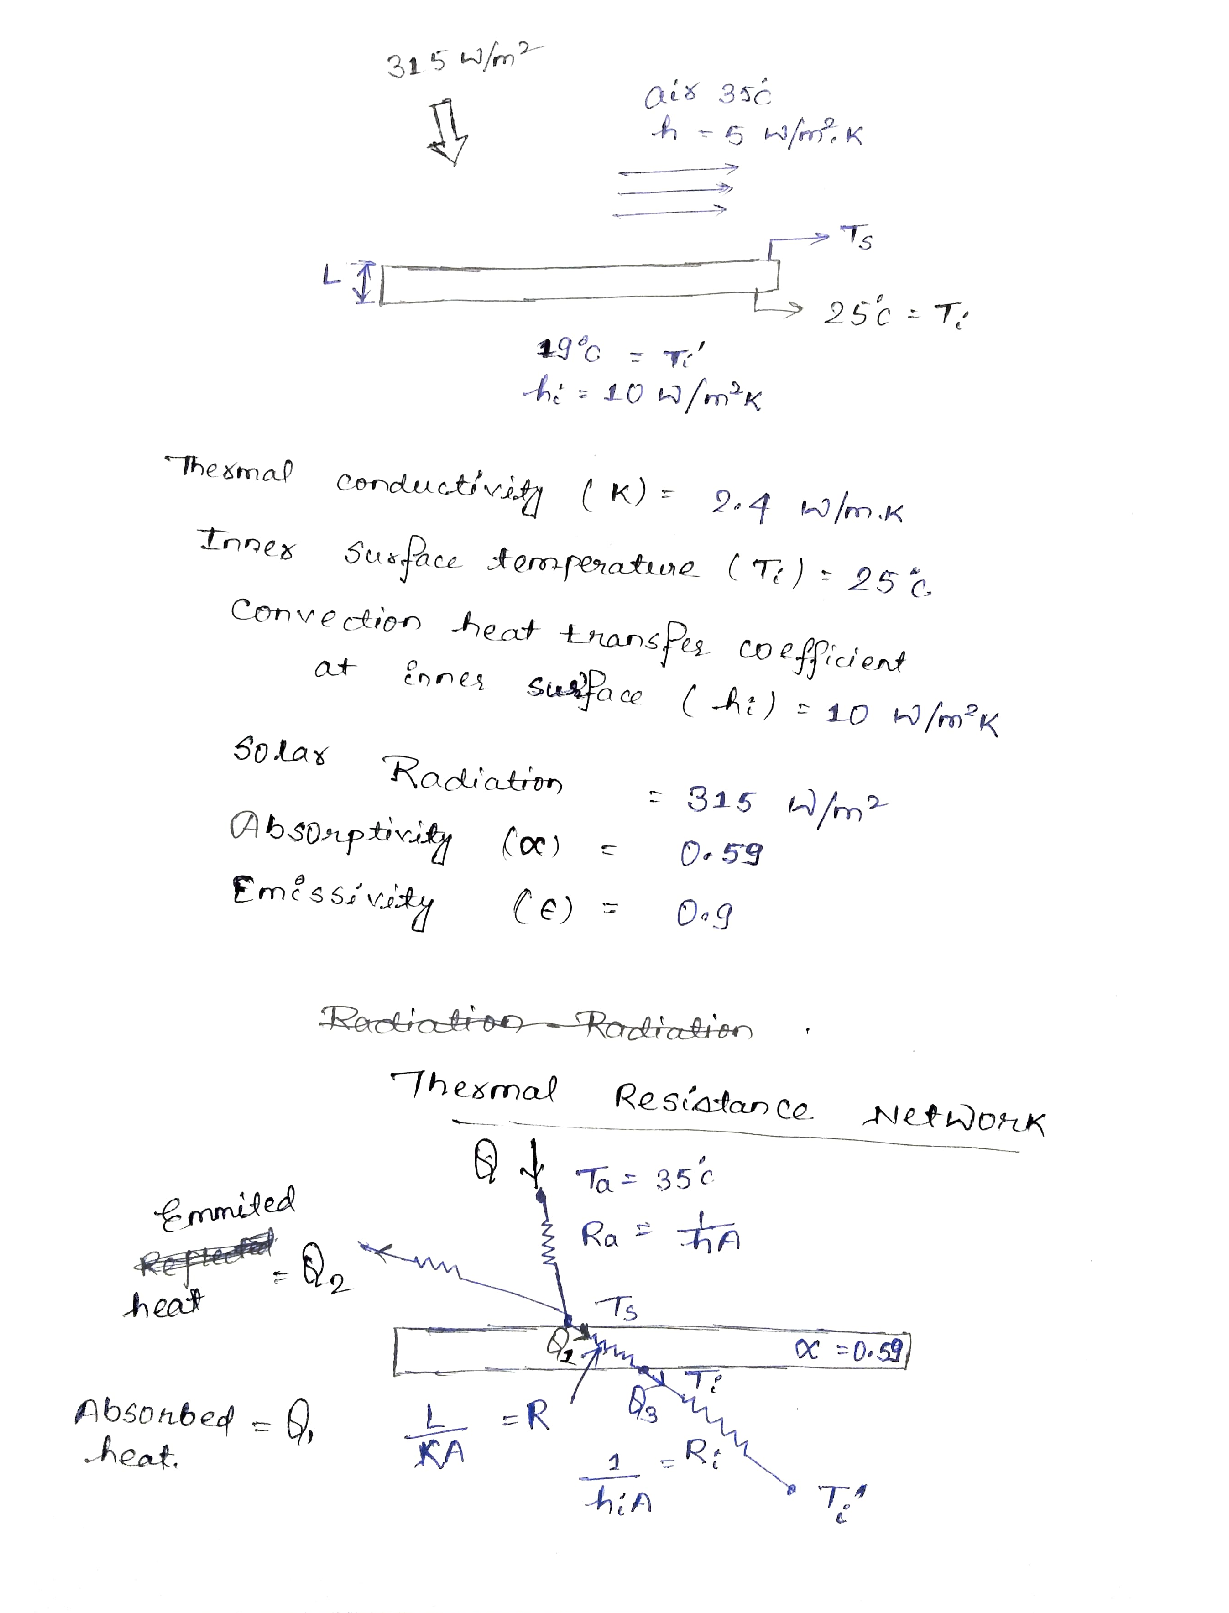 315 W/m²
air 35°C
h = 5 W/m².K
Ts
L
25°C = Ti
19°C = Ti'
hi = 10 W/m²K
Thermal conductivity (K) = 2.4 W/m.K
Inner surface temperature (Ti) = 25°C
Convection heat transfer coefficient
at inner surface (hi) = 10 W/m²K
Solar Radiation = 315 W/m²
Absorptivity (α) = 0.59
Emissivity (ϵ) = 0.9
Radiation - Radiation
Thermal Resistance Network
Q
Ta = 35°C
Ra = 1/hA
Emmited
Reflected
heat = Q2
Ts
Q1
α = 0.59
Ti
Absorbed = Q1
heat.
L/KA = R
Q3
1/hiA = Ri
Ti'